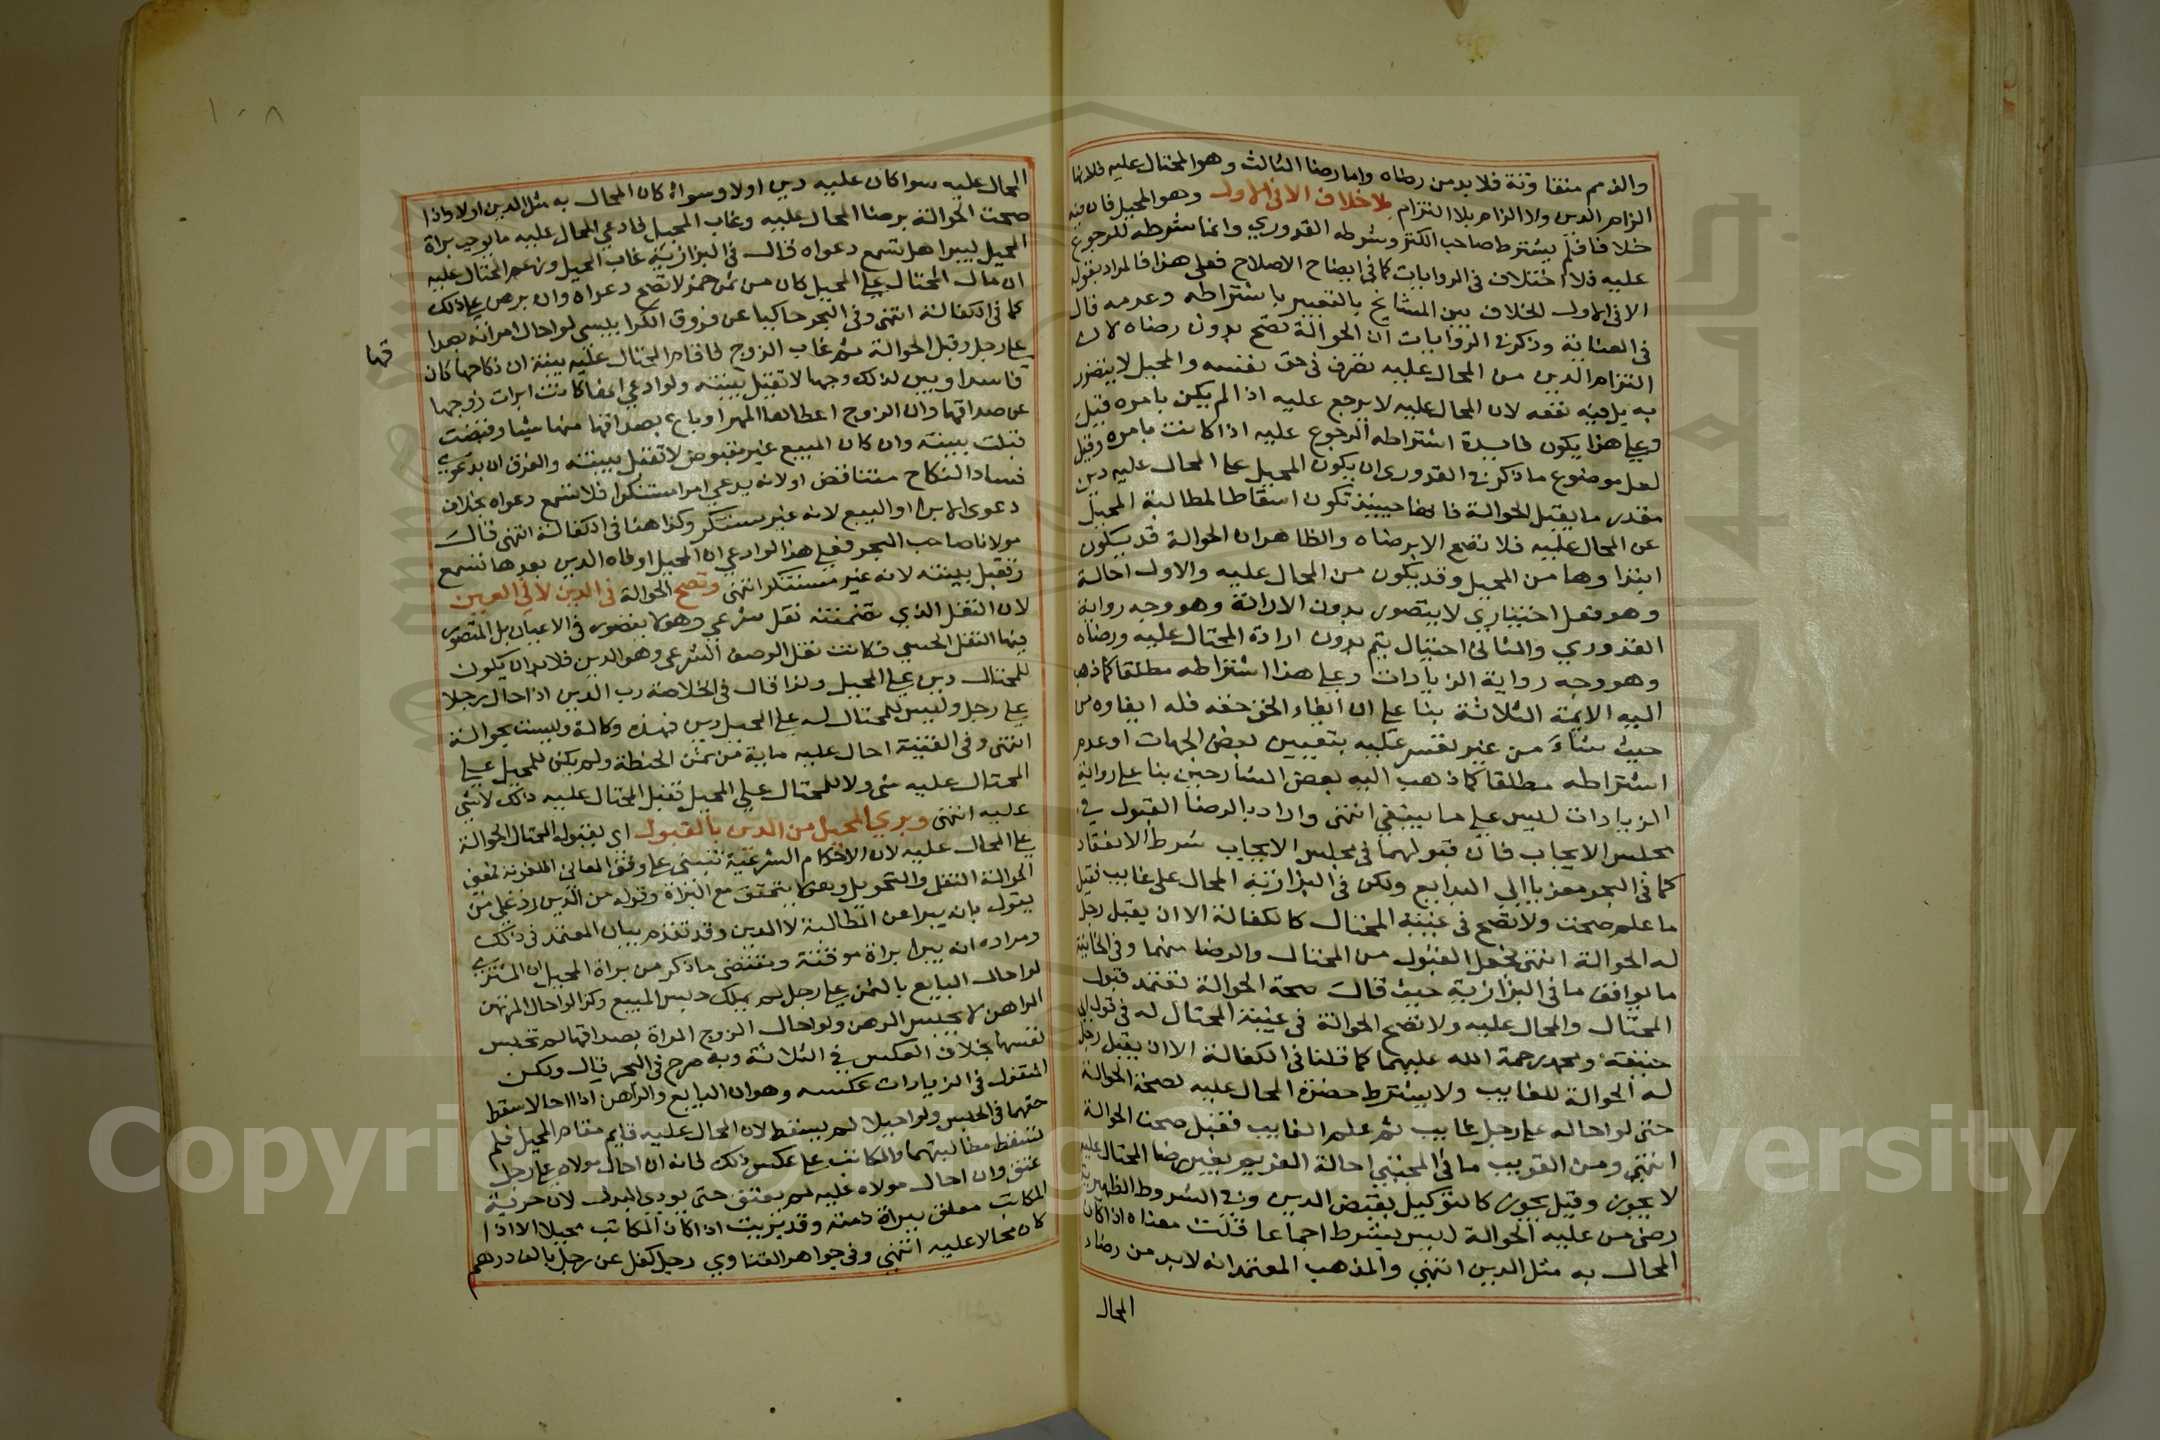 والذمم متفاوتة فلا بد من رضاه واما رضا الثالث وهو المحتال عليه فلانها
الزام الدين ولا الزام بلا التزام بلا خلاف الا في الاول وهو المحيل فان فيه
خلافا فلم يشترط صاحب الكنز وشرطه القدوري وانما شرطه للرجوع
عليه فلا اختلاف في الروايات كما في ايضاح الاصلاح فعلى هذا فالمراد بقوله
الا في الاول الخلاف بين المشايخ بالتعبير باشتراطه وعدمه قال
في العناية وذكر في الزيادات ان الحوالة تصح بدون رضاه لان
التزام الدين من المحال عليه تصرف في حق نفسه والمحيل لا يتضرر
به بل فيه نفعه لان المحال عليه لا يرجع عليه اذا لم يكن بامره قيل
وعلى هذا يكون فايدة اشتراطه الرجوع عليه اذا كانت بامره وقيل
لعل موضوع ما ذكر في القدوري ان يكون للمحيل على المحال عليه دين
مقدر ما يقبل الحوالة فانها حينيذ تكون اسقاطا لمطالبة المحيل
عن المحال عليه فلا تصح الا برضاه والظاهر ان الحوالة قد يكون
ابتداوها من المحيل وقد يكون من المحال عليه والاول احالة
وهو فعل اختياري لا يتصور بدون الارادة وهو وجه رواية
القدوري والثاني احتيال يتم بدون ارادة المحتال عليه ورضاه
وهو وجه رواية الزيادات وعلى هذا اشتراطه مطلقا كما ذهب
اليه الايمة الثلاثة بنا على ان ايفاء الحق حقه فله ايفاوه من
حيث شاء من غير قسر عليه بتعيين بعض الجهات او عدم
اشتراطه مطلقا كما ذهب اليه بعض الشارحين بنا على رواية
الزيادات ليس على ما ينبغي انتهى واراد بالرضا القبول في
مجلس الايجاب فان قبولهما في مجلس الايجاب شرط الانعقاد
كما في البحر معزيا الي البدايع ولكن في البزازية المحال على غايب فقبل
ما علم صحت ولا تصح في غيبة المحتال كالكفالة الا ان يقبل رجل
له الحوالة انتهى فجعل القبول من المحتال والرضا منهما وفي الخانية
ما يوافق ما في البزازية حيث قال صحة الحوالة تعتمد قبول
المحتال والمحال عليه ولا تصح الحوالة في غيبة المحتال له في قول ابي
حنيفة ومحمد رحمة الله عليهما كما قلنا في الكفالة الا ان يقبل رجل
له الحوالة للغايب ولا يشترط حضرة المحال عليه لصحة الحوالة
حتى لو احاله على رجل غايب ثم علم الغايب فقبل صحت الحوالة
انتهى ومن الغريب ما في المجتبي احالة الغريم بغير رضا المحتال عليه
لا يجوز وقيل يجوز كالتوكيل بقبض الدين وفي الشروط الظهيرية
رضى من عليه الحوالة ليس بشرط اجماعا قلت معناه اذا كان
المحال به مثل الدين انتهي والمذهب المعتمد انه لا بد من رضاء
المحال
١٠٨
المحال عليه سوا كان عليه دين اولا وسواء كان المحال به مثل الدين اولا واذا
صحت الحوالة برضا المحال عليه وغاب المحيل فادعي المحال عليه ما يوجب براة
المحيل ليبرا هل تسمع دعواه قال في البزازية غاب المحيل وزعم المحتال عليه
ان مال المحتال على المحيل كان من ثمن خمر لا تصح دعواه وان برهن على ذلك
كما في الكفالة انتهى وفي البحر حاكيا عن فروق الكرابيسي لو احال امراته بهدا
على رجل وقبل الحوالة ثم غاب الزوج فاقام المحتال عليه بينة ان نكاحها كان
قها
فاسدا وبين لذلك وجها لا تقبل بينته ولو ادعى انها كانت ابرات زوجها
عن صداقها وان الزوج اعطاها المهر او باع بصداقها منها شيا وقبضت
قبلت بينته وان كان المبيع غير مقبوض لا تقبل بينته والفرق ان مدعي
فساد النكاح متناقض اولانه يدعي امرا مستنكرا فلا تسمع دعواه بخلاف
دعوى الابراء او البيع لانه غير مستنكر وكذا هذا في الكفالة انتهى قال
مولانا صاحب البحر فعلى هذا لو ادعي ان المحيل اوفاه الدين بعدها تسمع
وتقبل بينته لانه غير مستنكر انتهى وتصح الحوالة في الدين لا في العين
لان النقل الذي تضمنته نقل شرعي وهو لا يتصور في الاعيان بل المتصور
فيها النقل الحسي فكانت نقل الوصف الشرعى وهو الدين فلا بد ان يكون
للمحتال دين على المحيل ولذا قال في الخلاصة رب الدين اذا احال رجلا
على رجل وليس للمحتال له على المحيل دين فهذه وكالة وليست بحوالة
انتهى وفي القنية احال عليه ماية من ثمن الحنطة ولم يكن للمحيل على
المحتال عليه شي ولا للمحتال على المحيل فقبل المحتال عليه ذلك لا شي
عليه انتهى وبري المحيل من الدين بالقبول اي بقبول المحتال الحوالة
على المحال عليه لان الاحكام الشرعية تبتنى على وفق المعاني اللغوية فمعنى
الحوالة النقل والتحويل وهو لا يتحقق مع البراة وقوله من الدين رد على من
يقول بانه يبرا عن المطالبة لا الدين وقد تقدم بيان المعتمد في ذلك
ومراده انه يبرا براة موقتة ومقتضى ما ذكر من براة المحيل ان المشتري
لو احال البايع بالثمن على رجل لم يملك حبس المبيع وكذا لو احال المرتهن
الراهن لا يحبس الرهن ولو احال الزوج المراة بصداقها لم تحبس
نفسها بخلاف العكس في الثلاثة وبه صرح في البحر قال ولكن
المنقول في الزيادات عكسه وهو ان البايع والراهن اذا احالا سقط
حقهما في الحبس ولو احيلا لم يسقط لان المحال عليه قايم مقام المحيل فلم
تسقط مطالبتهما والمكاتب على عكس ذلك فانه ان احال مولاه على رجل
عتق وان احال مولاه عليه لم يعتق حتى يودي البدل لان حرية
المكاتب معلق ببراة ذمته وقد بريت اذا كان المكاتب محيلا الا اذا
كان محالا عليه انتهي وفي جواهر الفتاوي رجل كفل عن رجل بالف درهم
Copyright © King Saud University